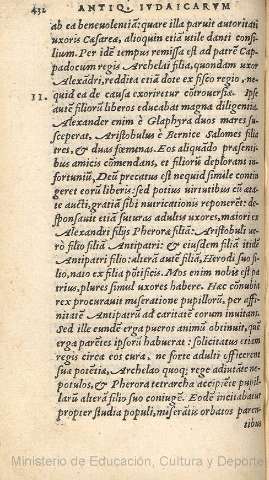 432 ANTIQ. IVDAICARVM
ab ea beneuolentiã: quare illa paruit autoritati
uxoris Cæsarea, alioquin etiã utile danti consi-
lium. Per idẽ tempus remissa est ad patrẽ Cap-
padocum regis Archelai filia, quondam uxor
Alexãdri, reddita etiã dote ex fisco regio, ne-
quid ea de causa exoriretur cõtrouersia. Ipse
11. autẽ filiorũ liberos educabat magna diligentia.
Alexander enim è Glaphyra duos mares su-
sceperat, Aristobulus è Bernice Salomes filia
tres, & duas fœminas. Eos aliquãdo præsenti-
bus amicis cõmendans, et filiorũ deplorans in-
fortuniũ, Deũ precatus est nequid simile contin
geret eorũ liberis: sed potius uirtutibus cũ æta-
te aucti, gratiã sibi nutricationis reponerẽt: de-
sponsauit etiã futuras adultis uxores, maiori ex
Alexandri filijs Pheroræ filiã: Aristobuli ue-
rò filio filiã Antipatri: & eiusdem filiã itidẽ
Antipatri filio: alterã autẽ filiã, Herodi suo fi-
lio, nato ex filia põtificis. Mos enim nobis est pa
trius, plures simul uxores habere. Hæc cõnubia
rex procurauit miseratione pupillorũ, per affi-
nitatẽ Antipatrũ ad caritatẽ eorum inuitans.
Sed ille eundẽ erga pueros animũ obtinuit, quẽ
erga parẽtes ipsorũ habuerat: solicitatus etiam
regis circa eos cura, ne forte adulti officerent
suæ potẽtiæ, Archelao quoq; rege adiutãte ne-
potulos, & Pherora tetrarcha accipiẽte pupil-
larũ alterã filio suo coniugẽ. Eodẽ incitabatur
propter studia populi, miserãtis orbatos paren-
tibus
Ministerio de Educación, Cultura y Deporte